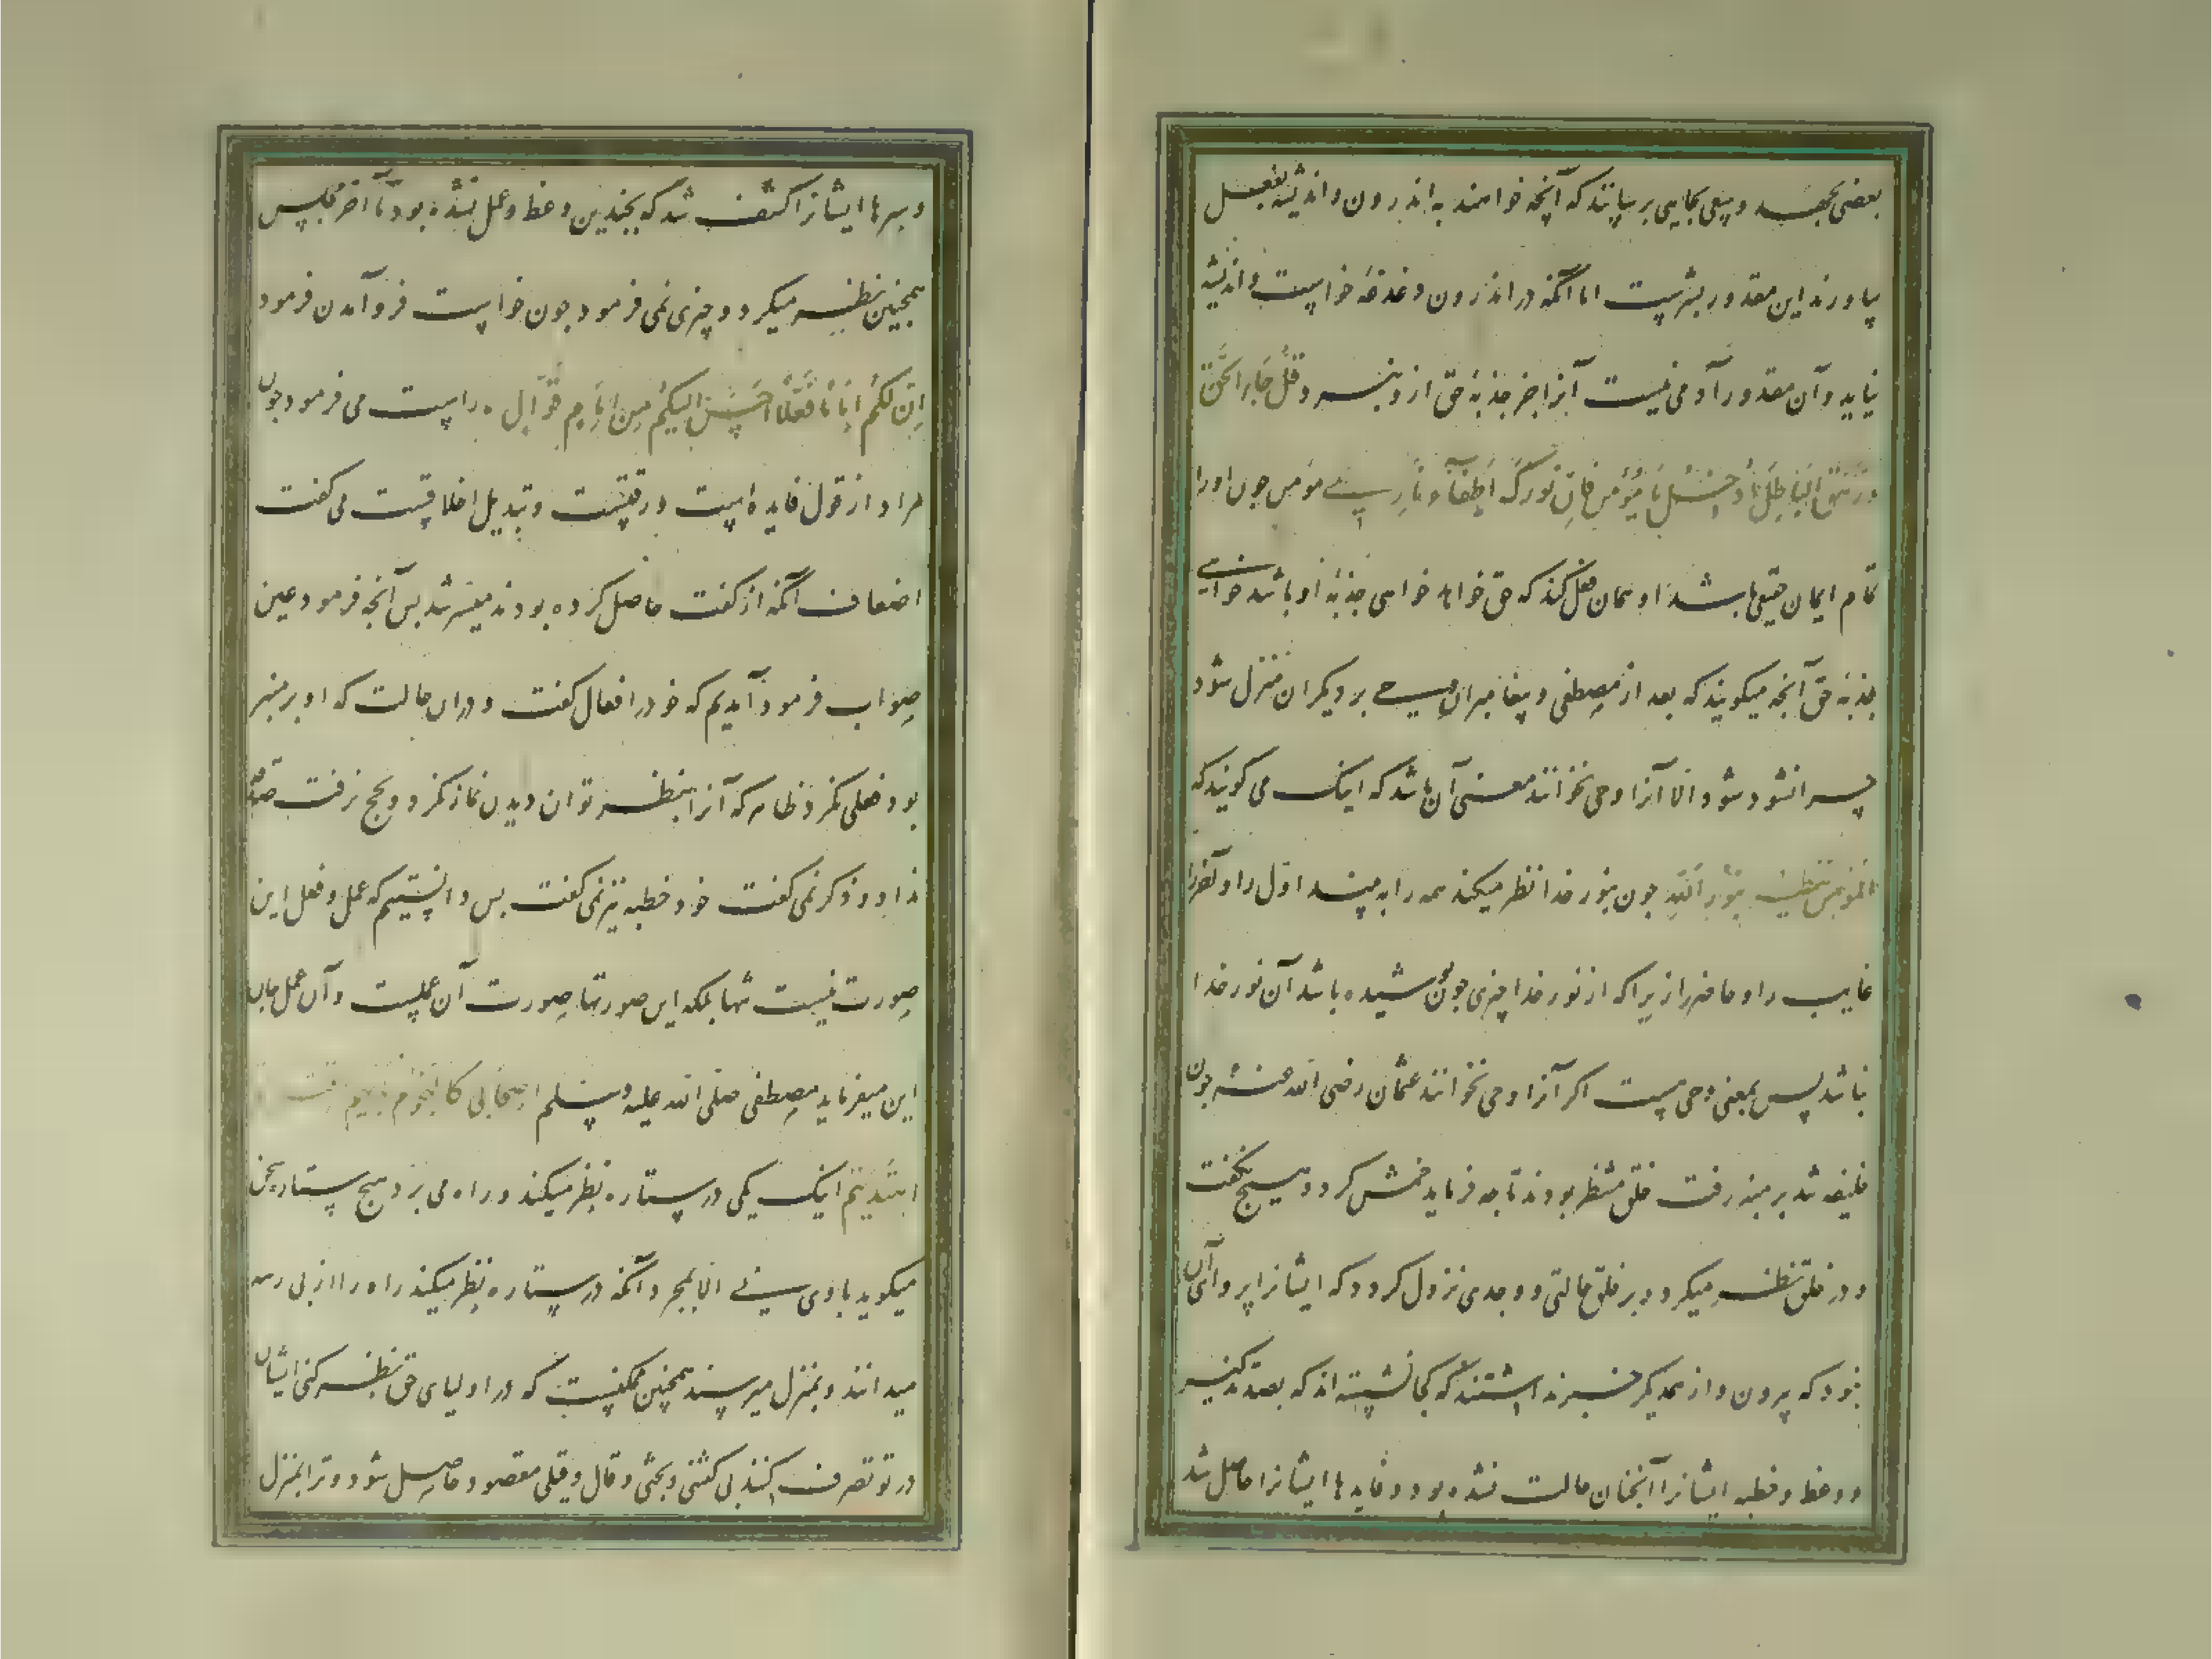 بعضی بجهد و سعی بجایی برسانند که آنچه خواهند به اندرون و اندیشه بفعل
بیاورند این مقدور بشرست اما آنکه در اندرون دغدغهٔ خواست و اندیشه
نیاید و آن مقدور آدمی نیست آنرا جز جذبهٔ حق از و نبرد و قُل جَاءَ الحَقّ
وَزَهَقَ البَاطِلُ اُدخُل یَا مُؤمِن فَاِنَّ نُورَکَ اَطفَأَ نَارِی مؤمن چون او را
تمام ایمان حقیقی باشد او همان فعل کند که حق خواهی جذبهٔ او باشد خواهی
جذبهٔ حق آنچه میگویند که بعد از مصطفی و پیغامبران وحی بر دیگران منزل شود
چرا نشود شود الا آنرا وحی نخوانند معنی آن باشد که اینک می گویند که
المُؤمِنُ یَنظُرُ بِنُورِ اللهِ چون بنور خدا نظر میکند همه را به بیند اول را و آخر را
غایب را و حاضر را زیرا که از نور خدا چیزی چون پوشیده باشد آن نور خدا
نباشد پس بمعنی وحی هست اگر آنرا وحی نخوانند عثمان رضی الله عنه چون
خلیفه شد بر منبر رفت خلق منتظر بودند تا چه فرماید خمش کرد و هیچ نگفت
و در خلق نظر میکرد و بر خلق حالتی و وجدی نزول کرد که ایشانرا پروای آن
نبود که بیرون و از همدیگر خبر نداشتند که کجا نشسته اند که بصد تذکیر
و وعظ و خطبه ایشانرا آنچنان حالت نشده بود و فایدها ایشانرا حاصل شد
و سرها ایشانرا کشف شد که بچندین وعظ و عمل نشده بود تا آخر مجلس
همچنین نظر میکرد و چیزی نمی فرمود چون خواست فرو آمدن فرمود
اِنَّ لَکُم اِمَامًا فَعَّالًا اَحسَنُ اِلَیکُم مِن اِمَامٍ قَوَّالٍ راست می فرمود چون
مراد از قول فایده است و رقتست و تبدیل اخلاقست بی گفت
اضعاف آنکه از گفت حاصل کرده بودند میسر شد پس آنچه فرمود عین
صواب فرمود آمدیم که خود را فعال گفت و در آن حالت که او بر منبر
بود فعلی نکرد ظاهر که آنرا بنظر توان دیدن نماز نکرد و بحج نرفت صدقه
نداد و ذکر نمی گفت خود خطبه نیز نمی گفت پس دانستیم که عمل و فعل این
صورت نیست تنها بلکه این صورتها صورت آن عملست و آن عمل جان
این میفرماید مصطفی صلی الله علیه وسلم اصحابی کالنجوم بایهم
اهتدیتم اینک یکی در ستاره نظر میکند و راه می برد هیچ ستاره سخن
میگوید باوی نی الا بمجرد آنکه در ستاره نظر میکند راه را از بی رهی
میدانند و بمنزل میرسند همچنین ممکنست که در اولیای حق نظر کنی ایشان
در تو تصرف کنند بی گفتنی و بحثی و قال و قیلی مقصود حاصل شود و ترا بمنزل